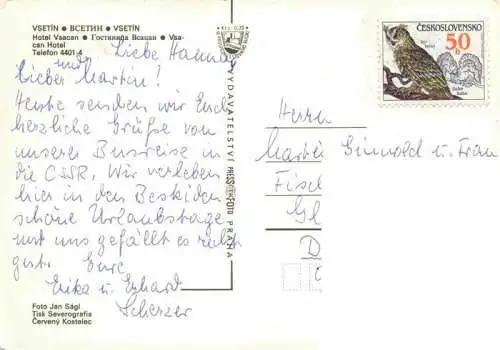 VSETÍN • ВСЕТИН • VSETÍN
Hotel Vsacan • Гостиница Всацан • Vsa-
can Hotel
Telefon 4401-4
Liebe Hanna
und
lieber Martin!
Heute senden wir Euch
herzliche Grüße von
unserer Busreise in
die CSSR. Wir verleben
hier in den Beskiden
schöne Urlaubstage
und uns gefällt es recht
gut. Eure
Erika u. Erhard
Scherzer
Foto Jan Ságl
Tisk Severografia
Červený Kostelec
VYDAVATELSTVÍ PRESSFOTO PRAHA
ČESKOSLOVENSKO
50
h
Herrn
Martin Grünwold u. Frau
Fisc
Gl
D